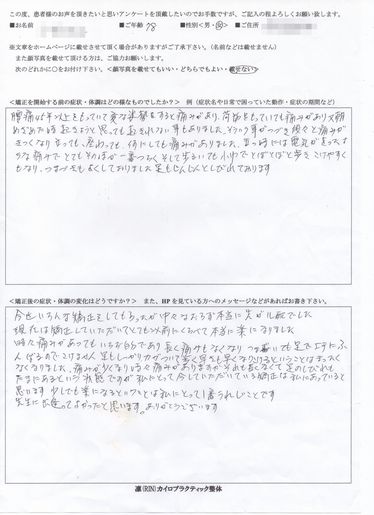 この度、患者様のお声を頂きたいと思いアンケートを頂戴したいのでお手数ですが、ご記入の程よろしくお願い致します。
■お名前 ■ご年齢 78 ■性別<男・女> ■ご住所
※文章をホームページに載せさせて頂く場合がありますがご了承下さい。(名前などは載せません)
また顔写真を載せて頂ける方は、ご協力お願いします。
次のどれかに○をお付け下さい。<顔写真を載せてもいい・どちらでもよい・載せない>
<矯正を開始する前の症状・体調はどの様なものでしたか? 例(症状名や日常で困っていた動作・症状の期間など)
腰痛45年以上をもっていて変な姿勢をすると痛みがあり、荷物をもっていても痛みがあり又朝
めがさめた時起きようと思っても起きれない事もありました。そういう事がつづき段々と痛みが
きつくなり立っても、座わっても、何にしても痛みがありました。立つ時には電気が走ったよ
うな痛みで とてもそのほが一番つらく そして歩るいても小わりでとぼとぼと歩き こけやすく
もなり、つまづきもよくしておりました 足もじんじんとしびれております
<矯正後の症状・体調の変化はどうですか? また、HPを見ている方へのメッセージなどがあればお書き下さい。
今迄いろんな矯正をしてもらったが中々なおらず本当に先が心配でした
現在は矯正していただいてとても以前にくらべて本当に楽になりました
時々痛みがあっても いちじ的であり長く痛みもなくなり つま
なくなりました。痛みが少くなり時々痛みがありますがそれも長くなくて足のしびれも
たまにあるという状態ですが私にとって今していただいている矯正は私にあっていると
思います 少しでも楽になるということは私にとって1番うれしいことです
先生に出逢ってよかったと思います。ありがとうございます
凛(RIN)カイロプラクティック整体